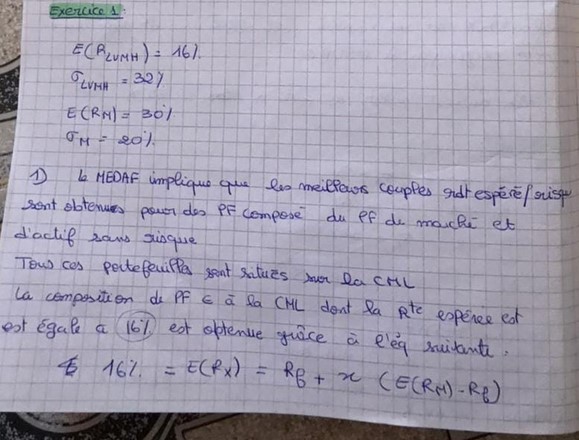 Exercice 1:
E(R_LVMH) = 16%.
σ_LVMH = 32%
E(R_M) = 30%
σ_M = 20%.
1) le MEDAF implique que les meilleurs couples rdt espéré/risque
sont obtenues pour des PF composé du PF du marché et
d'actif sans risque
Tous ces portefeuilles sont situés sur la CML
la composition de PF ∈ à la CML dont la Rté espérée est
est égale a 16% est obtenue grâce à l'éq suivante.
16%. = E(R_X) = R_f + x (E(R_M) - R_f)